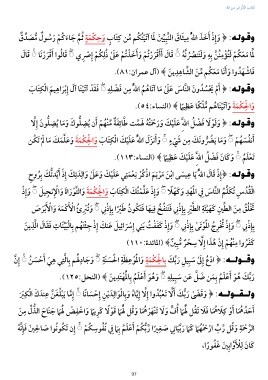 كتاب الأمر من الله
وقوله: ﴿ وَإِذْ أَخَذَ اللَّهُ مِيثَاقَ النَّبِيِّينَ لَمَا آتَيْتُكُم مِّن كِتَابٍ وَحِكْمَةٍ ثُمَّ جَاءَكُمْ رَسُولٌ مُّصَدِّقٌ
لِّمَا مَعَكُمْ لَتُؤْمِنُنَّ بِهِ وَلَتَنصُرُنَّهُ ۚ قَالَ أَأَقْرَرْتُمْ وَأَخَذْتُمْ عَلَىٰ ذَٰلِكُمْ إِصْرِي ۖ قَالُوا أَقْرَرْنَا ۚ قَالَ
فَاشْهَدُوا وَأَنَا مَعَكُم مِّنَ الشَّاهِدِينَ ﴾ (آل عمران:٨١).
وقوله: ﴿ أَمْ يَحْسُدُونَ النَّاسَ عَلَىٰ مَا آتَاهُمُ اللَّهُ مِن فَضْلِهِ ۖ فَقَدْ آتَيْنَا آلَ إِبْرَاهِيمَ الْكِتَابَ
وَالْحِكْمَةَ وَآتَيْنَاهُم مُّلْكًا عَظِيمًا ﴾ (النساء:٥٤).
وقوله: ﴿ وَلَوْلَا فَضْلُ اللَّهِ عَلَيْكَ وَرَحْمَتُهُ لَهَمَّت طَّائِفَةٌ مِّنْهُمْ أَن يُضِلُّوكَ وَمَا يُضِلُّونَ إِلَّا
أَنفُسَهُمْ ۖ وَمَا يَضُرُّونَكَ مِن شَيْءٍ ۚ وَأَنزَلَ اللَّهُ عَلَيْكَ الْكِتَابَ وَالْحِكْمَةَ وَعَلَّمَكَ مَا لَمْ تَكُن
تَعْلَمُ ۚ وَكَانَ فَضْلُ اللَّهِ عَلَيْكَ عَظِيمًا ﴾ (النساء:١١٣).
وقوله: ﴿ إِذْ قَالَ اللَّهُ يَا عِيسَى ابْنَ مَرْيَمَ اذْكُرْ نِعْمَتِي عَلَيْكَ وَعَلَىٰ وَالِدَتِكَ إِذْ أَيَّدتُّكَ بِرُوحِ
الْقُدُسِ تُكَلِّمُ النَّاسَ فِي الْمَهْدِ وَكَهْلًا ۖ وَإِذْ عَلَّمْتُكَ الْكِتَابَ وَالْحِكْمَةَ وَالتَّوْرَاةَ وَالْإِنجِيلَ ۖ وَإِذْ
تَخْلُقُ مِنَ الطِّينِ كَهَيْئَةِ الطَّيْرِ بِإِذْنِي فَتَنفُخُ فِيهَا فَتَكُونُ طَيْرًا بِإِذْنِي ۖ وَتُبْرِئُ الْأَكْمَهَ وَالْأَبْرَصَ
بِإِذْنِي ۖ وَإِذْ تُخْرِجُ الْمَوْتَىٰ بِإِذْنِي ۖ وَإِذْ كَفَفْتُ بَنِي إِسْرَائِيلَ عَنكَ إِذْ جِئْتَهُم بِالْبَيِّنَاتِ فَقَالَ الَّذِينَ
كَفَرُوا مِنْهُمْ إِنْ هَٰذَا إِلَّا سِحْرٌ مُّبِينٌ ﴾ (المائدة:١١٠)
وقوله: ﴿ ادْعُ إِلَىٰ سَبِيلِ رَبِّكَ بِالْحِكْمَةِ وَالْمَوْعِظَةِ الْحَسَنَةِ ۖ وَجَادِلْهُم بِالَّتِي هِيَ أَحْسَنُ ۚ إِنَّ
رَبَّكَ هُوَ أَعْلَمُ بِمَن ضَلَّ عَن سَبِيلِهِ ۖ وَهُوَ أَعْلَمُ بِالْمُهْتَدِينَ ﴾ (النحل:١٢٥).
ولقوله: ﴿ وَقَضَىٰ رَبُّكَ أَلَّا تَعْبُدُوا إِلَّا إِيَّاهُ وَبِالْوَالِدَيْنِ إِحْسَانًا ۚ إِمَّا يَبْلُغَنَّ عِندَكَ الْكِبَرَ
أَحَدُهُمَا أَوْ كِلَاهُمَا فَلَا تَقُل لَّهُمَا أُفٍّ وَلَا تَنْهَرْهُمَا وَقُل لَّهُمَا قَوْلًا كَرِيمًا وَاخْفِضْ لَهُمَا جَنَاحَ الذُّلِّ مِنَ
الرَّحْمَةِ وَقُل رَّبِّ ارْحَمْهُمَا كَمَا رَبَّيَانِي صَغِيرًا رَّبُّكُمْ أَعْلَمُ بِمَا فِي نُفُوسِكُمْ ۚ إِن تَكُونُوا صَالِحِينَ فَإِنَّهُ
كَانَ لِلْأَوَّابِينَ غَفُورًا،
97